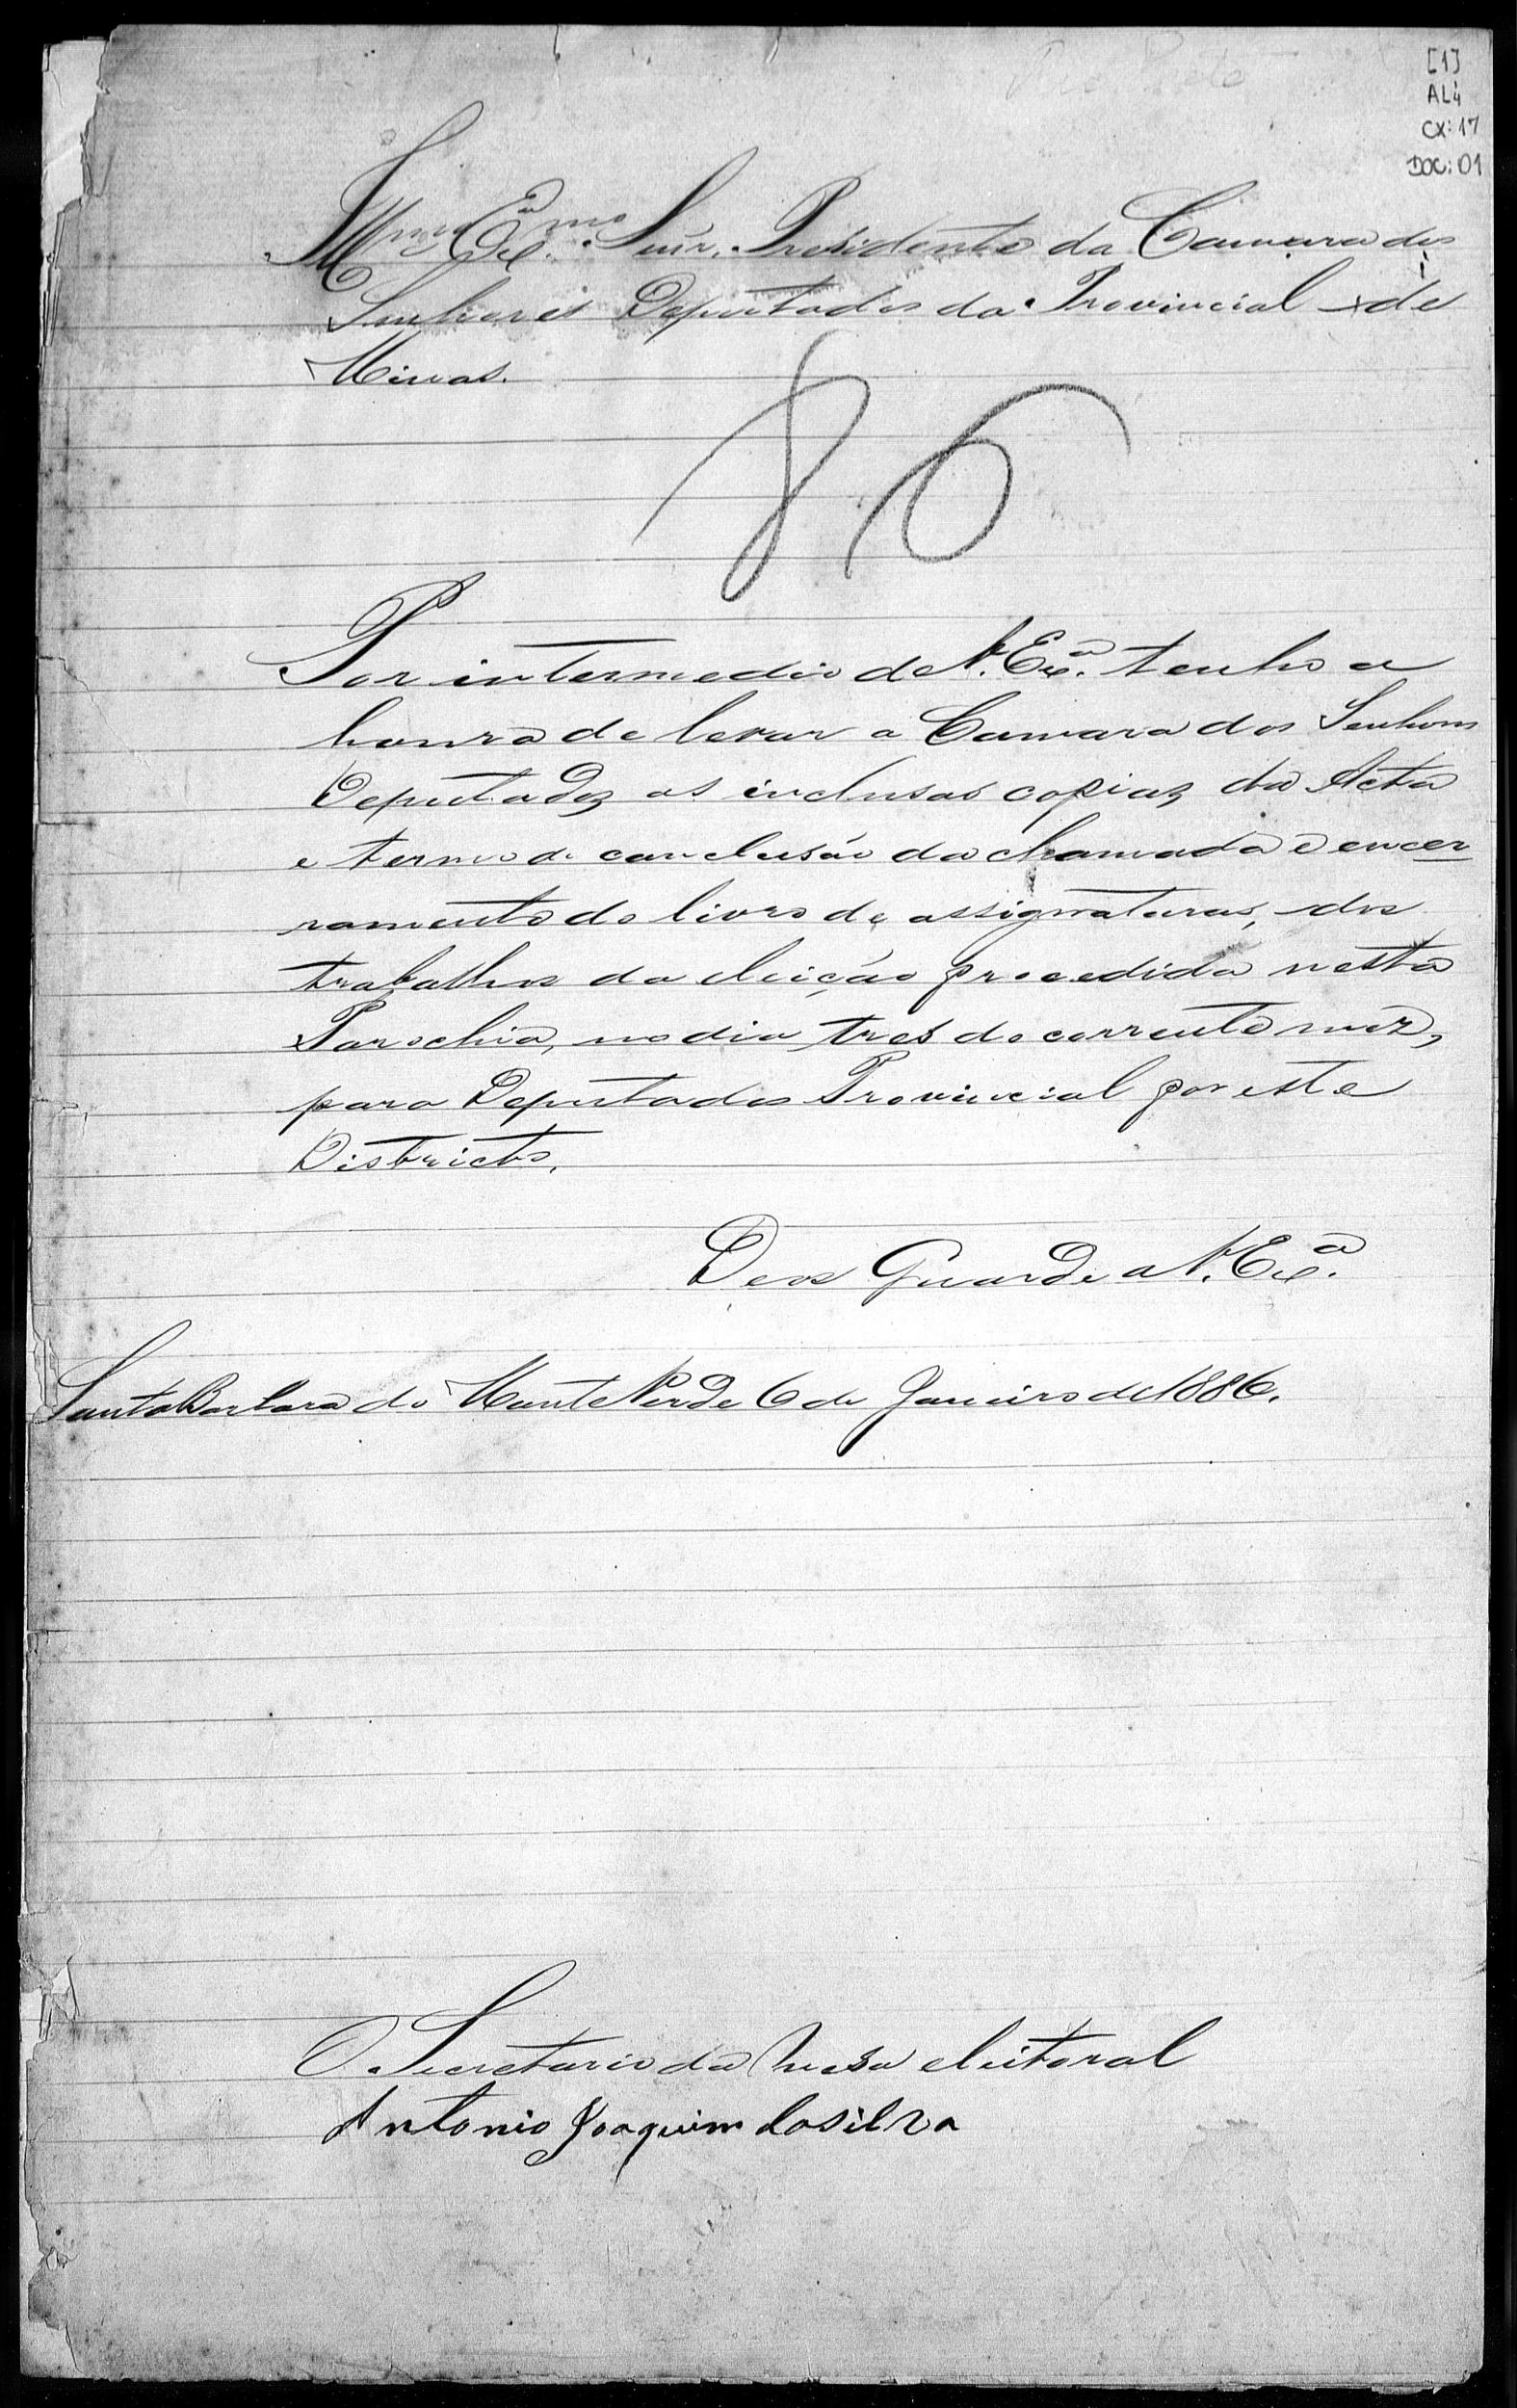 [1]
AL4
CX: 17
DOC: 01
Illmo Exmo. Snr. Presidente da Camara dos
Senhores Deputados da Provincial de
Minas.
86
Por intermedio de V. Exª. tenho a
honra de levar a Camara dos Senhores
Deputados as inclusas copias da Acta
e termo de conclusão da chamada e encer
ramento do livro de assignaturas, dos
trabalhos da eleição procedida nesta
Parochia, no dia tres do corrente mez,
para Deputados Provincial por este
Districto.
Deos Guarde a V. Exª.
Santa Barbara do Monte Verde 6 de Janeiro de 1886.
O Secretario da Mesa eleitoral
Antonio Joaquim da Silva